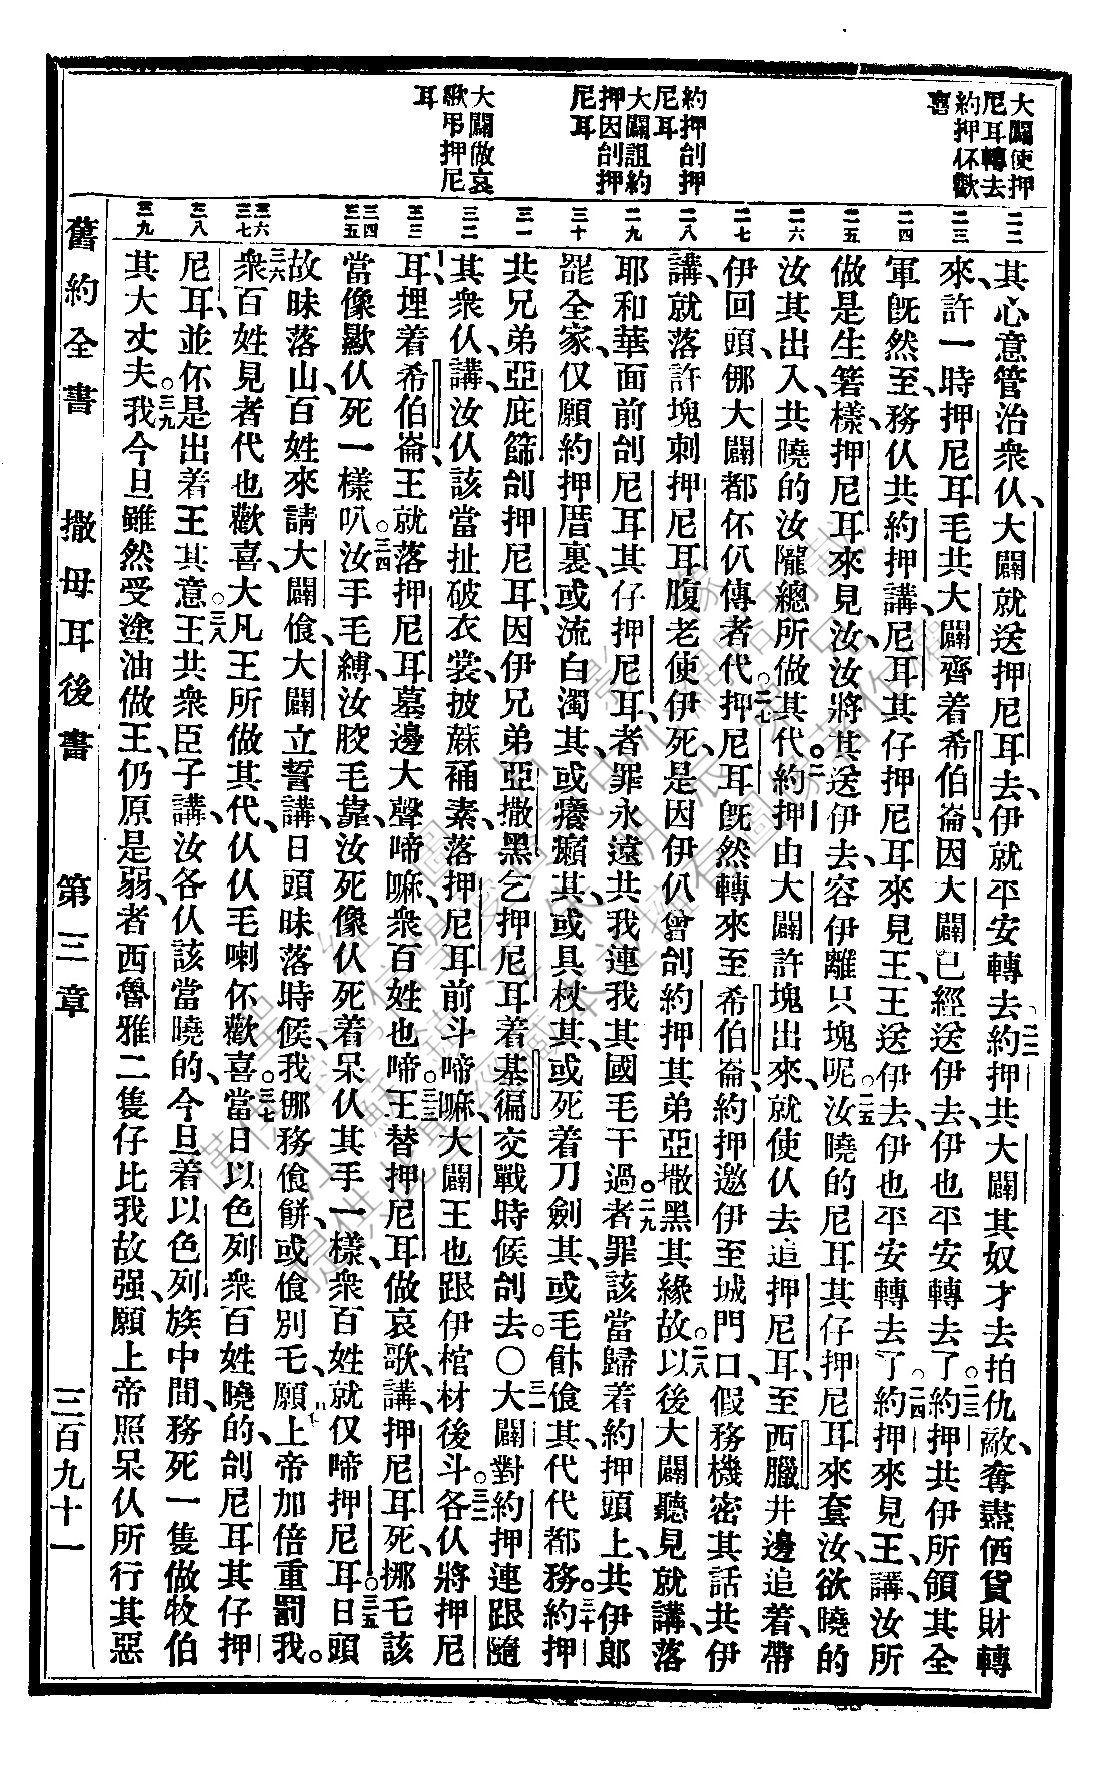 大闢使押
尼耳轉去
約押伓歡
喜
約押刣押
尼耳
大闢詛約
押因刣押
尼耳
大闢做哀
歌弔押尼
耳
二二
二三
二四
二五
二六
二七
二八
二九
三十
三一
三二
三三
三四
三五
三六
三七
三八
三九
其心意管治衆仈、大闢就送押尼耳去、伊就平安轉去。二二約押共大闢其奴才去拍仇敵、奪盡価貨財轉
來、許一時押尼耳毛共大闢齊着希伯崙、因大闢已經送伊去、伊也平安轉去了。二三約押共伊所領其全
軍旣然至、務仈共約押講、尼耳其仔押尼耳來見王、王送伊去、伊也平安轉去了。二四約押來見王、講、汝所
做是生箬樣、押尼耳來見汝、汝將其送伊去、容伊離只塊呢。二五汝曉的尼耳其仔押尼耳來套汝、欲曉的
汝其出入、共曉的汝隴總所做其代。二六約押由大闢許塊出來、就使仈去追押尼耳、至西臘井邊追着、帶
伊回頭、㑚大闢都伓仈傳者代。二七押尼耳旣然轉來至希伯崙、約押邀伊至城門口、假務機密其話共伊
講、就落許塊刺押尼耳腹老、使伊死、是因伊仈曾刣約押其弟亞撒黑其緣故。二八以後大闢聽見就講、落
耶和華面前刣尼耳其仔押尼耳、者罪永遠共我連我其國毛干過。二九者罪該當歸着約押頭上、共伊郎
罷全家、仅願約押厝裏、或流白濁其、或癢癩其、或具杖其、或死着刀劍其、或毛飿飡其、代代都務。三十約押
共兄弟亞庇篩刣押尼耳、因伊兄弟亞撒黑乞押尼耳着基徧交戰時候刣去。〇三一大闢對約押連跟隨
其衆仈講、汝仈該當扯破衣裳、披蔴補素、落押尼耳前斗啼嘛、大闢王也跟伊棺材後斗。三二各仈將押尼
耳、埋着希伯崙、王就落押尼耳墓邊大聲啼嘛、衆百姓也啼。三三王替押尼耳做哀歌、講、押尼耳死、挪毛該
當像歞仈死一樣叭。三四汝手毛縛、汝骹毛靠、汝死像仈死着呆仈其手一樣、衆百姓就仅啼押尼耳。三五日頭
故昧落山、百姓來請大闢飡、大闢立誓講、日頭昧落時候、我㑚務飡餅、或飡別乇、願上帝加倍重罰我。
三六衆百姓見者代也歡喜、大凡王所做其代、仈仈毛喇伓歡喜。三七當日以色列衆百姓曉的、刣尼耳其仔押
尼耳、並伓是出着王其意。三八王共衆臣子講、汝各仈該當曉的、今旦着以色列族中間務死一隻做牧伯
其大丈夫。三九我今旦雖然受塗油做王、仍原是弱、者西魯雅二隻仔比我故强、願上帝照呆仈所行其惡
舊約全書　撒母耳後書　第三章　三百九十一